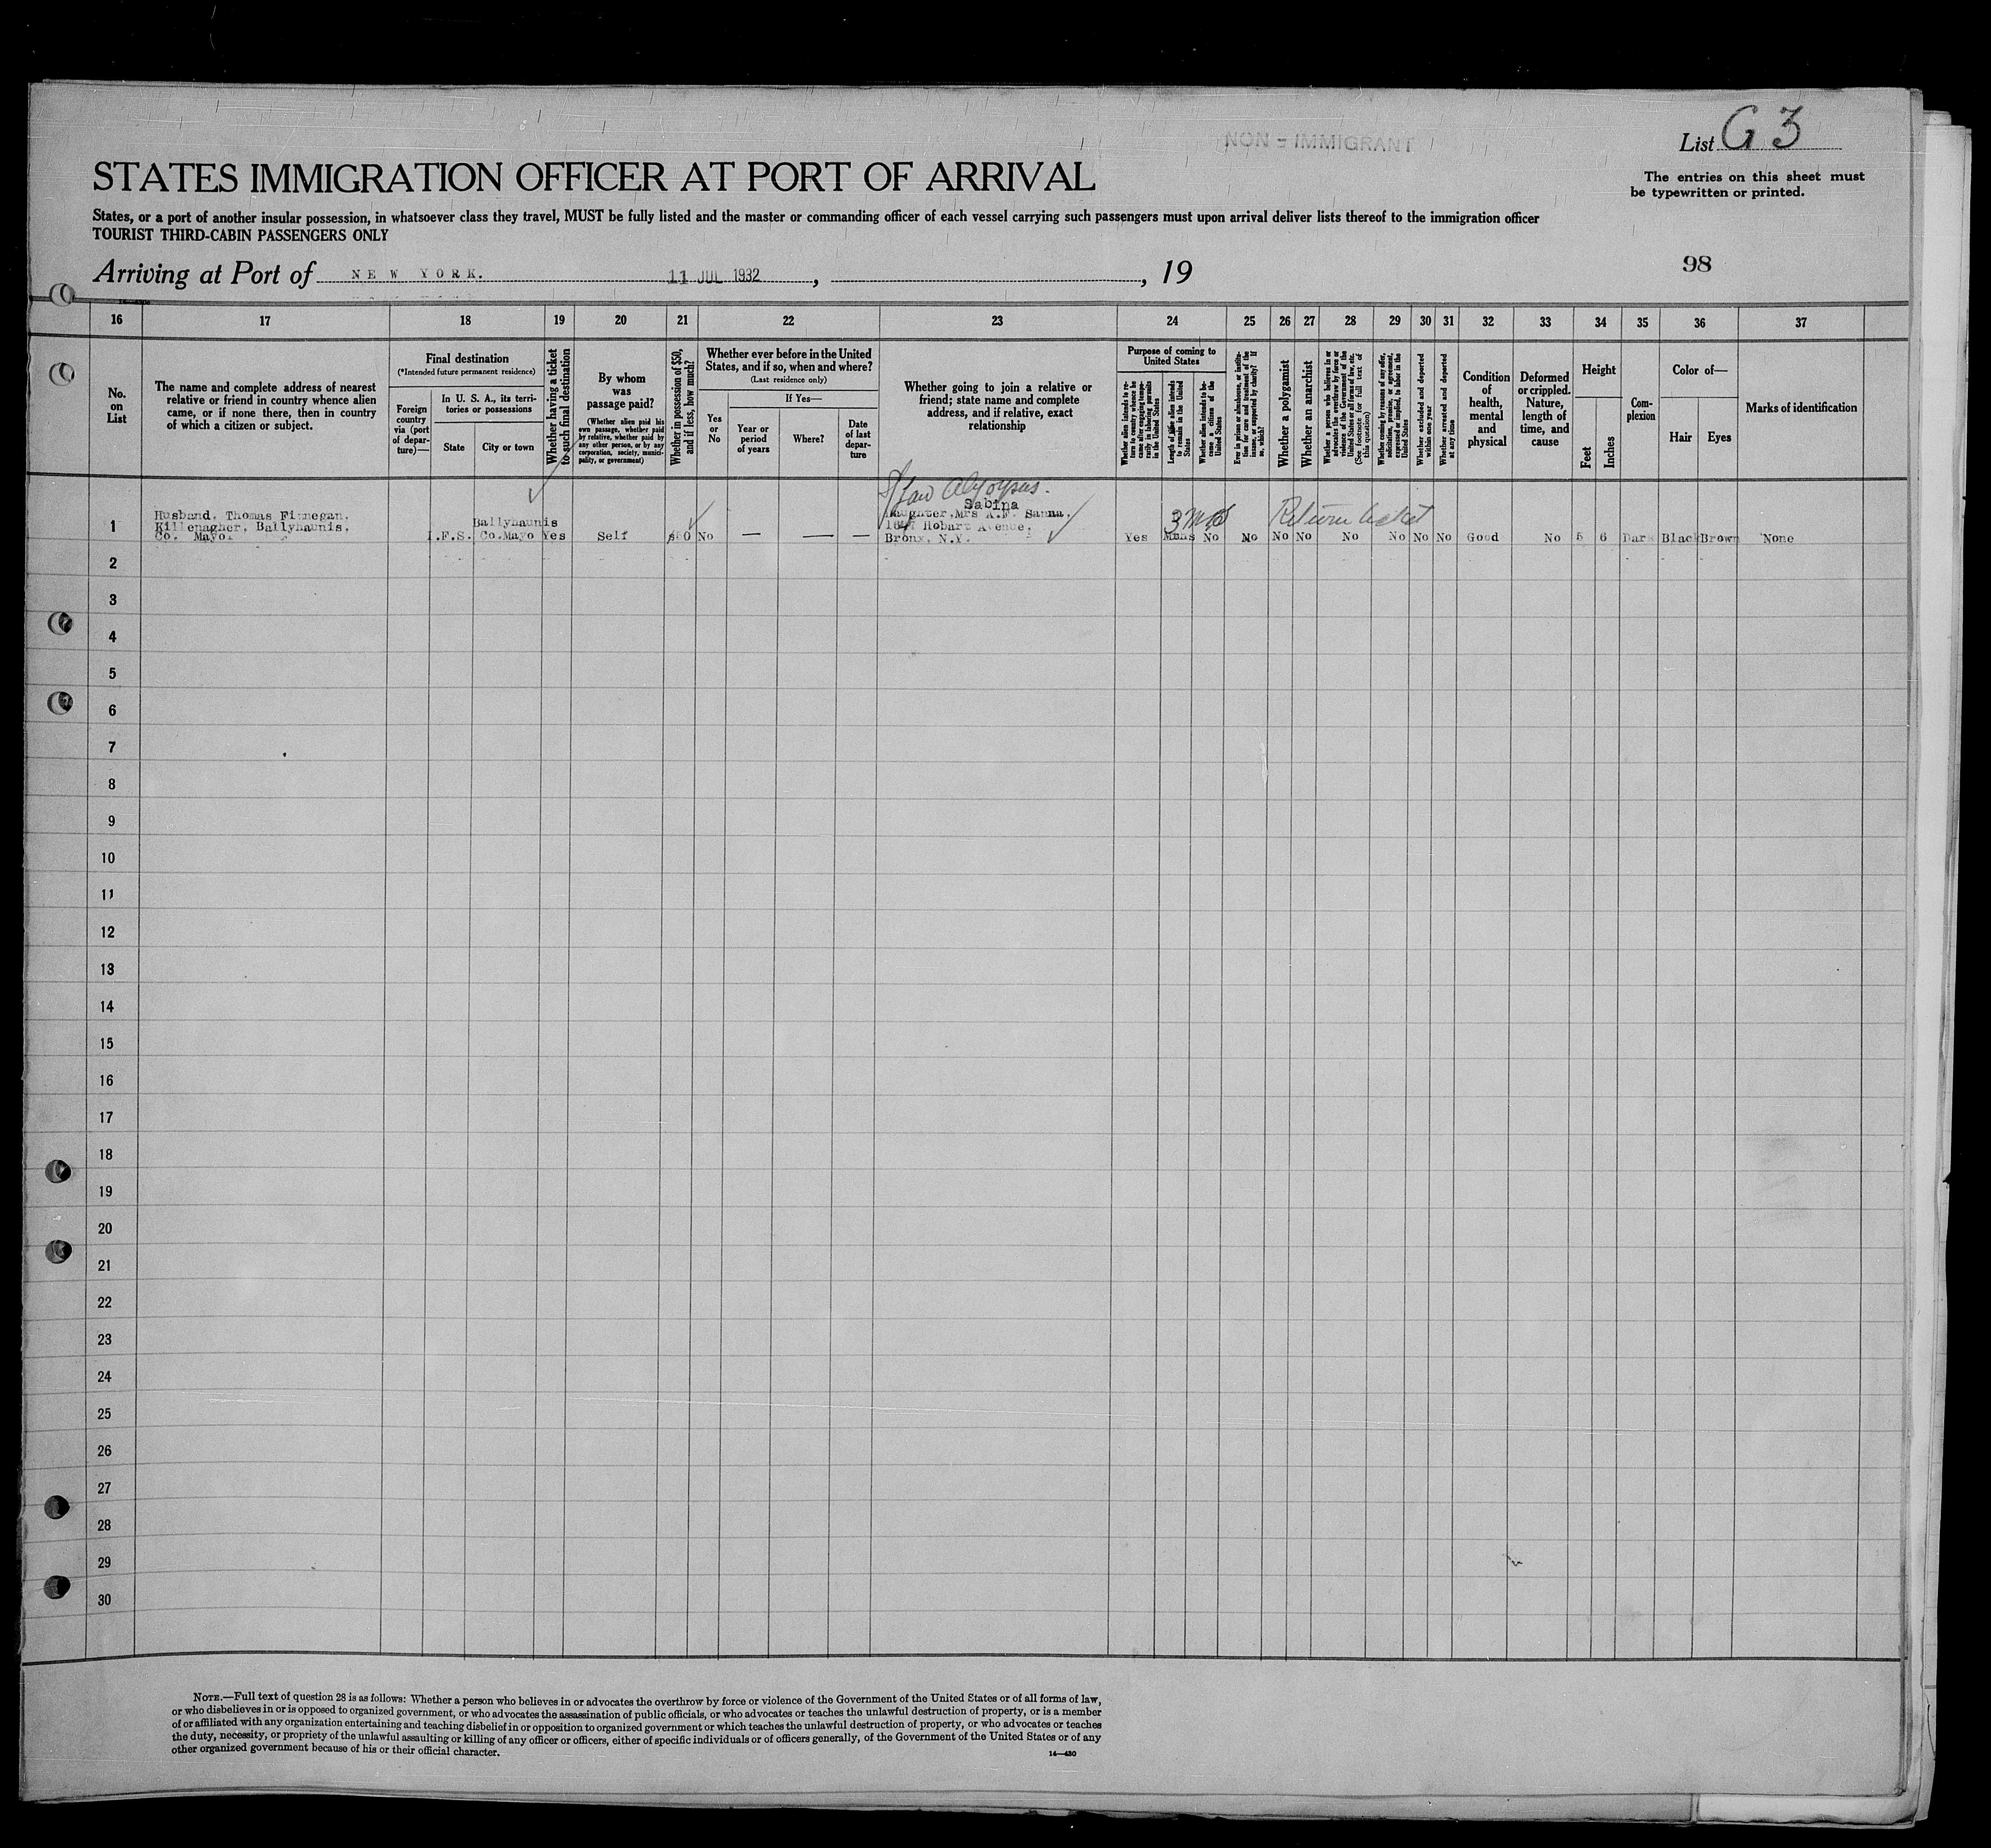 NON - IMMIGRANT
List G 3
STATES IMMIGRATION OFFICER AT PORT OF ARRIVAL
The entries on this sheet must
be typewritten or printed.
States, or a port of another insular possession, in whatsoever class they travel, MUST be fully listed and the master or commanding officer of each vessel carrying such passengers must upon arrival deliver lists thereof to the immigration officer
TOURIST THIRD-CABIN PASSENGERS ONLY
Arriving at Port of NEW YORK. 11 JUL 1932, , 19
98
16 17 18 19 20 21 22 23 24 25 26 27 28 29 30 31 32 33 34 35 36 37
No.
on
List
The name and complete address of nearest
relative or friend in country whence alien
came, or if none there, then in country
of which a citizen or subject.
Final destination
(*Intended future permanent residence)
Foreign
country
via (port
of depar-
ture)—
In U. S. A., its terri-
tories or possessions
State
City or town
Whether having a ticket
to such final destination
By whom
was
passage paid?
(Whether alien paid his
own passage, whether paid
by relative, whether paid by
any other person, or by any
corporation, society, munici-
pality, or government)
Whether in possession of $50,
and if less, how much?
Whether ever before in the United
States, and if so, when and where?
(Last residence only)
Yes
or
No
If Yes—
Year or
period
of years
Where?
Date
of last
depar-
ture
Whether going to join a relative or
friend; state name and complete
address, and if relative, exact
relationship
Purpose of coming to
United States
Whether alien intends to re-
turn to country whence he
came after engaging tempo-
rarily in laboring pursuits
in the United States
Length of time alien intends
to remain in the United
States
Whether alien intends to be-
come a citizen of the
United States
Ever in prison or almshouse, or institu-
tion for care and treatment of the
insane, or supported by charity? If
so, which?
Whether a polygamist
Whether an anarchist
Whether a person who believes in or
advocates the overthrow by force or
violence of the Government of the
United States or all forms of law, etc.
(See footnote for full text of
this question)
Whether coming by reasons of any offer,
solicitation, promise, or agreement,
expressed or implied, to labor in the
United States
Whether excluded and deported
within one year
Whether arrested and deported
at any time
Condition
of
health,
mental
and
physical
Deformed
or crippled.
Nature,
length of
time, and
cause
Height
Feet
Inches
Com-
plexion
Color of—
Hair
Eyes
Marks of identification
Sabina
1 Husband, Thomas Finnegan, Ballyhaunis Daughter, Mrs A.F. Sanna, 3 mos Return ticket
Killenagher, Ballyhaunis, Hobart Avenue,
Co. Mayo. I.F.S. Co.Mayo Yes Self $50 No — — — Bronx, N.Y. Yes No No No No No No No No Good No 5 6 Dark Black Brown None
2
3
4
5
6
7
8
9
10
11
12
13
14
15
16
17
18
19
20
21
22
23
24
25
26
27
28
29
30
NOTE.—Full text of question 28 is as follows: Whether a person who believes in or advocates the overthrow by force or violence of the Government of the United States or of all forms of law,
or who disbelieves in or is opposed to organized government, or who advocates the assassination of public officials, or who advocates or teaches the unlawful destruction of property, or is a member
of or affiliated with any organization entertaining and teaching disbelief in or opposition to organized government or which teaches the unlawful destruction of property, or who advocates or teaches
the duty, necessity, or propriety of the unlawful assaulting or killing of any officer or officers, either of specific individuals or of officers generally, of the Government of the United States or of any
other organized government because of his or their official character.
14—430